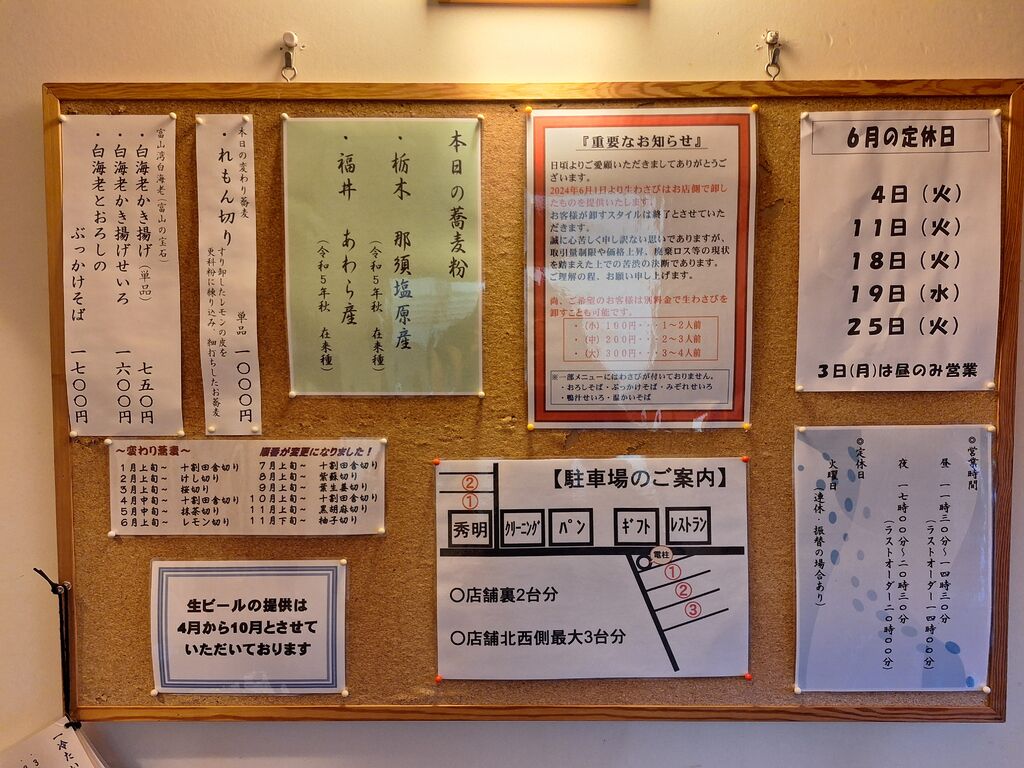 富山湾白海老(富山の宝石)
・白海老かき揚げ(単品) 七五〇円
・白海老かき揚げせいろ 一六〇〇円
・白海老とおろしの
ぶっかけそば 一七〇〇円
本日の変わり蕎麦
・れもん切り 単品 一〇〇〇円
すり卸したレモンの皮を
更科粉に練り込み、細打ちしたお蕎麦
本日の蕎麦粉
・栃木 那須塩原産
(令和5年秋 在来種)
・福井 あわら産
(令和5年秋 在来種)
『重要なお知らせ』
日頃よりご愛顧いただきましてありがとうご
ざいます。
2024年6月1日より生わさびはお店側で卸し
たものを提供いたします。
お客様が卸すスタイルは終了とさせていた
だきます。
誠に心苦しく申し訳ない思いでありますが、
取引量制限や価格上昇、廃棄ロス等の現状
を踏まえた上での苦渋の決断であります。
ご理解の程、お願い申し上げます。
尚、ご希望のお客様は別料金で生わさびを
卸すことも可能です。
・(小)100円・・・1~2人前
・(中)200円・・・2~3人前
・(大)300円・・・3~4人前
※一部メニューにはわさびが付いておりません。
・おろしそば・ぶっかけそば・みぞれせいろ
・鴨汁せいろ・温かいそば
6月の定休日
4日(火)
11日(火)
18日(火)
19日(水)
25日(火)
3日(月)は昼のみ営業
~変わり蕎麦~ 順番が変更になりました!
1月上旬~ 十割田舎切り
2月上旬~ けし切り
3月上旬~ 桜切り
4月中旬~ 十割田舎切り
5月中旬~ 抹茶切り
6月上旬~ レモン切り
7月上旬~ 十割田舎切り
8月上旬~ 紫蘇切り
9月上旬~ 葉生姜切り
10月上旬~ 十割田舎切り
11月上旬~ 黒胡麻切り
11月下旬~ 柚子切り
生ビールの提供は
4月から10月とさせて
いただいております
【駐車場のご案内】
②
①
秀明 クリーニング パン ギフト レストラン
電柱
①
②
③
〇店舗裏2台分
〇店舗北西側最大3台分
◎営業時間
昼 一一時三〇分~一四時三〇分
(ラストオーダー一四時〇〇分)
夜 一七時〇〇分~二〇時三〇分
(ラストオーダー二〇時〇〇分)
◎定休日
火曜日(連休・振替の場合あり)